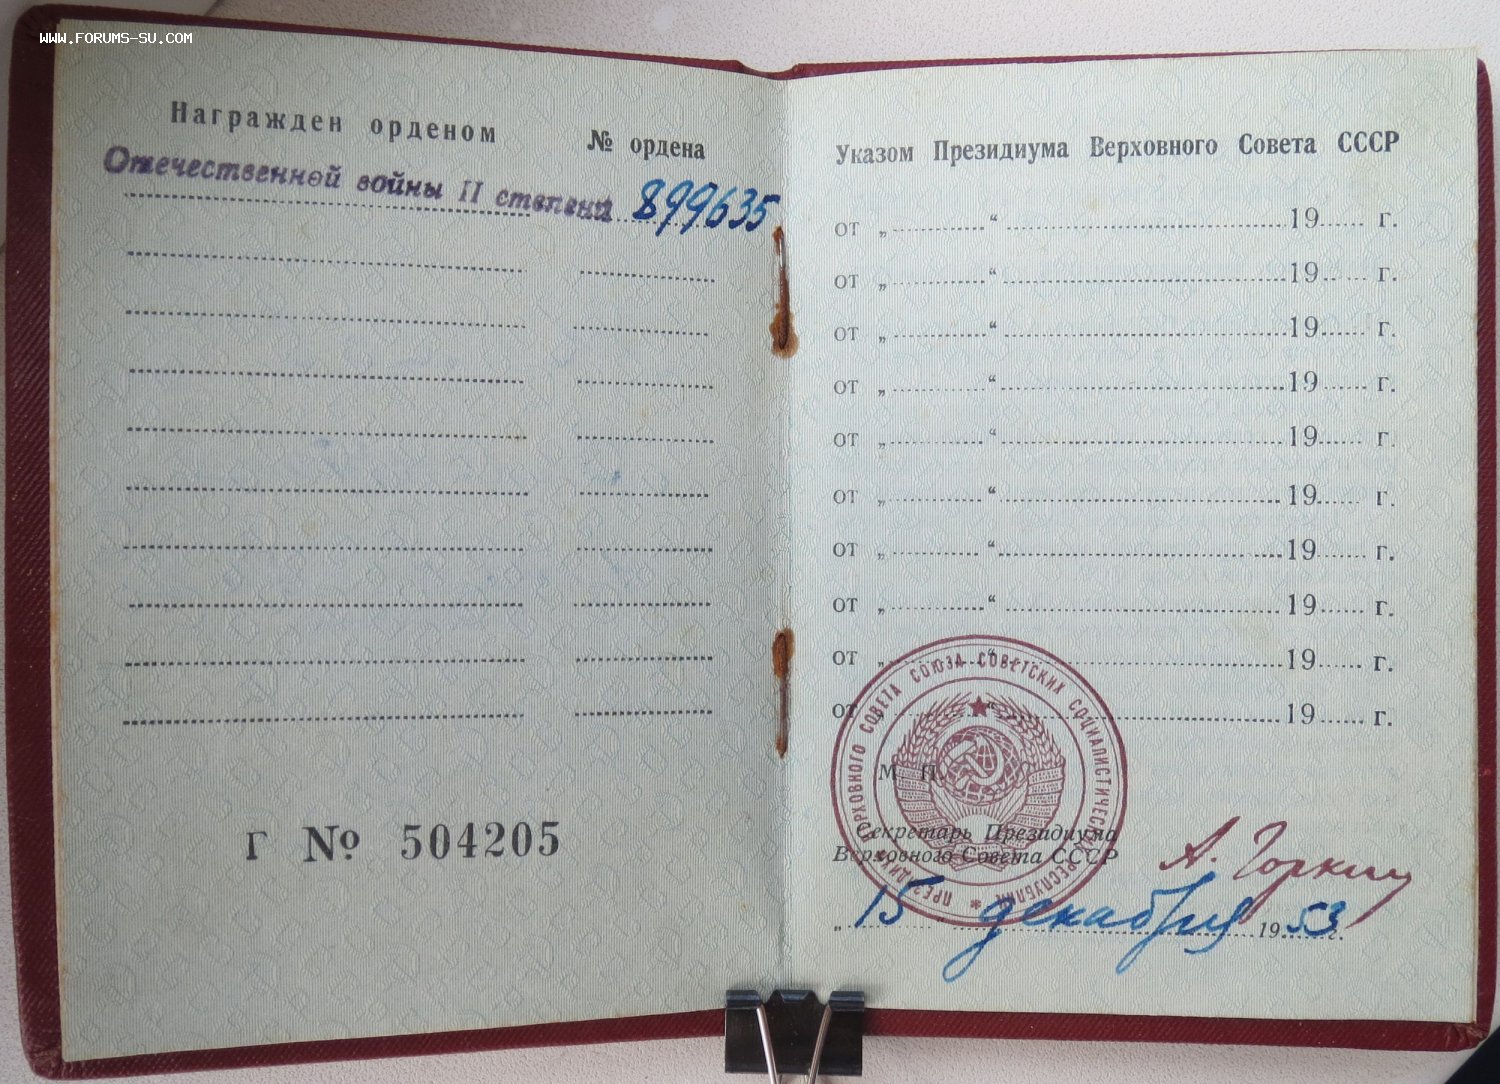 WWW.FORUMS-SU.COM
Награжден орденом
№ ордена
Отечественной войны II степени 899635
Г № 504205
Указом Президиума Верховного Совета СССР
от „ “ 19 г.
от „ “ 19 г.
от „ “ 19 г.
от „ “ 19 г.
от „ “ 19 г.
от „ “ 19 г.
от „ “ 19 г.
от „ “ 19 г.
от „ “ 19 г.
от „ “ 19 г.
М П.
ПРЕЗИДИУМ ВЕРХОВНОГО СОВЕТА СОЮЗА СОВЕТСКИХ СОЦИАЛИСТИЧЕСКИХ РЕСПУБЛИК *
Секретарь Президиума
Верховного Совета СССР
А. Горкин
„ 15 “ декабря 1953 г.